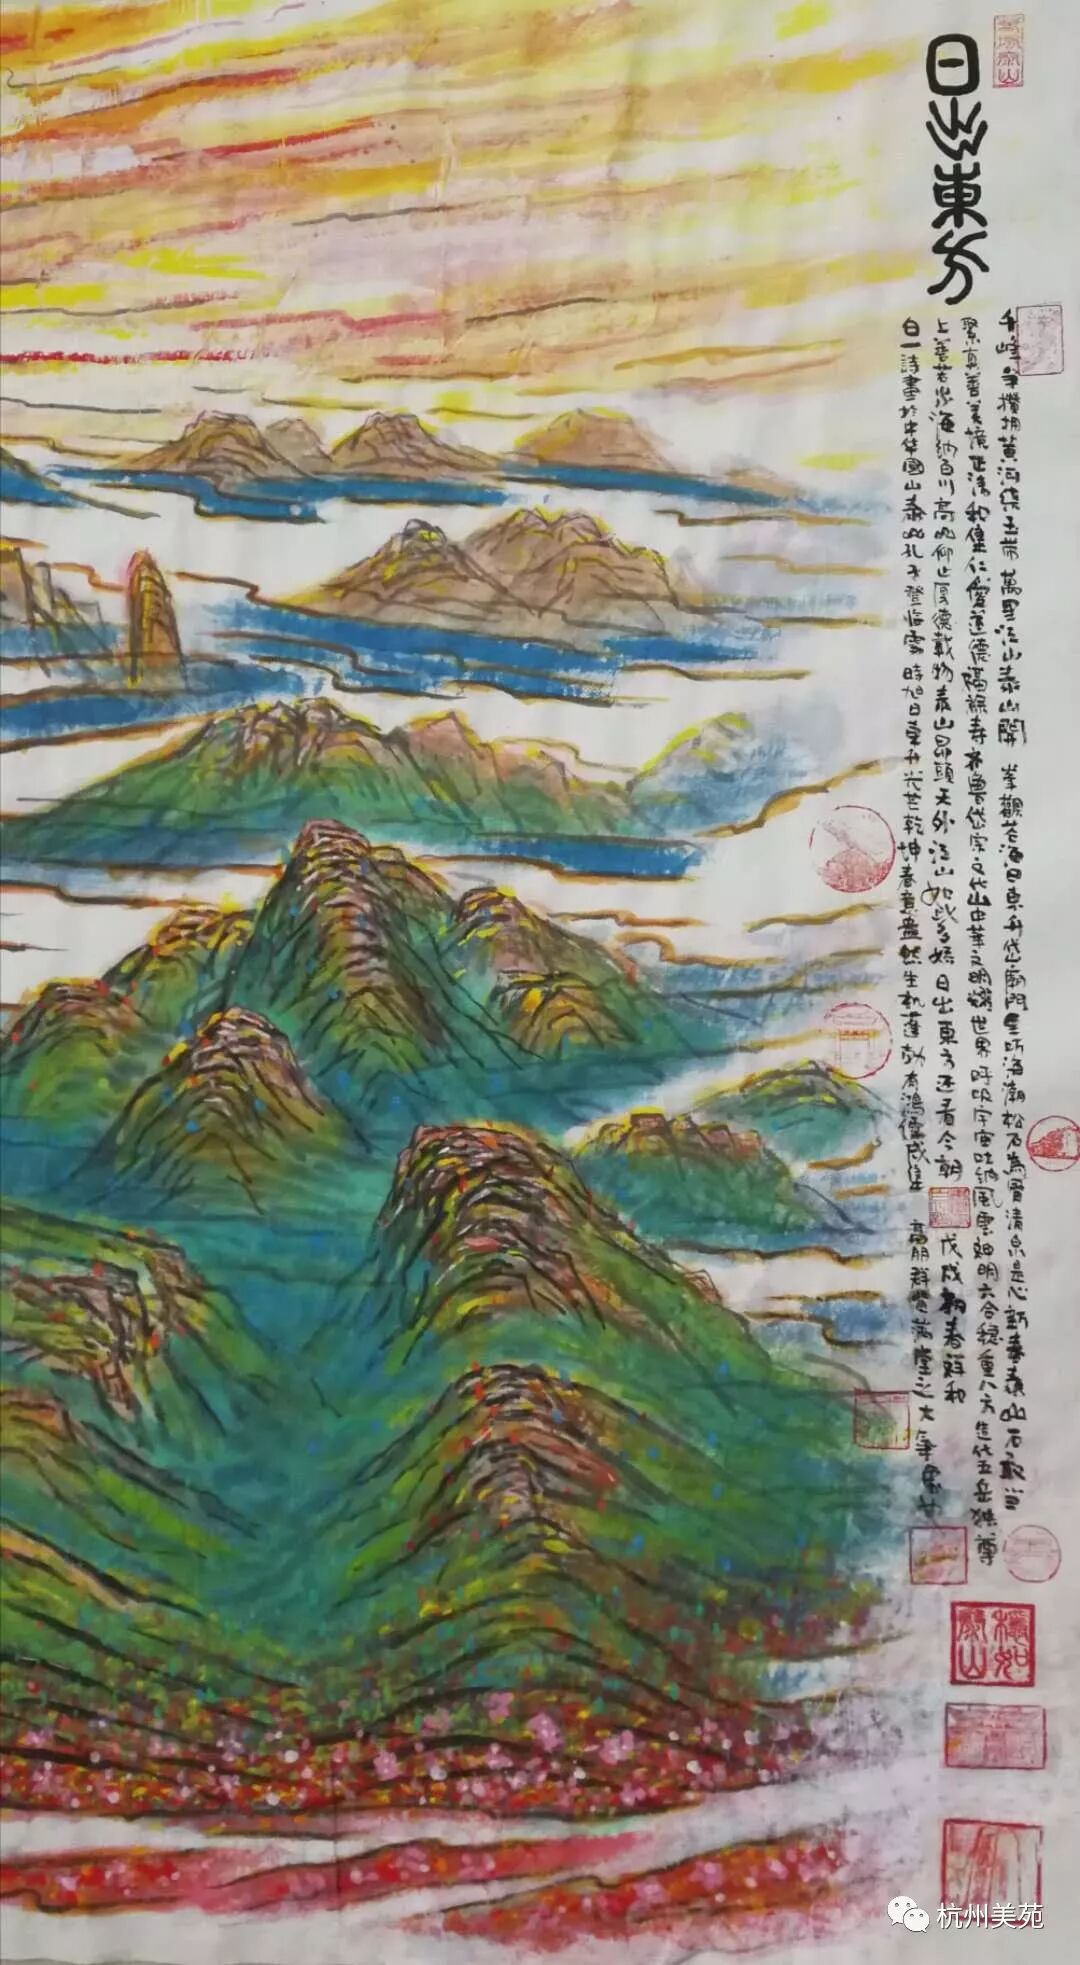 日出東方
千峰 攒拥黄河 玉带萬里江山泰山開 峯觀苍海日東升岱廟門里听海潮松石為骨清泉是心新春泰山石敢当
聚真善美境正清和健仁愛道德福祿寿齐鲁岱宗文化山中華文明耀世界呼吸宇宙吐纳風雲神明六合穩重八方造化五岳独尊
上善若水海纳百川高山仰止厚德載物泰山昂頭天外江山如此多娇日出東方还看今朝 戊戌初春祥和
白一詩畫於中华國山泰山孔子登临處時旭日東升光芒乾坤春意盎然生机蓬勃有鴻儒咸集 高朋群贤满堂
杭州美苑